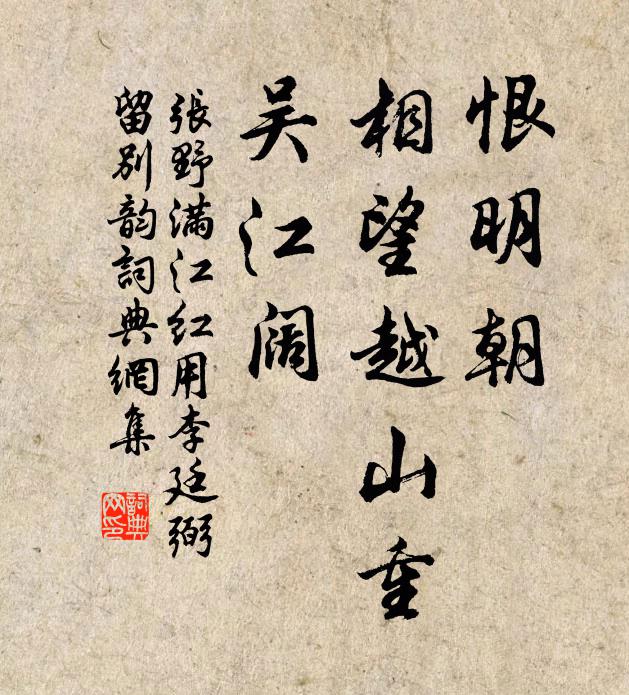 恨明朝
相望越山重
吴江阔
張野满江红用李廷弼
留别韵詞典網集
詞典
网印